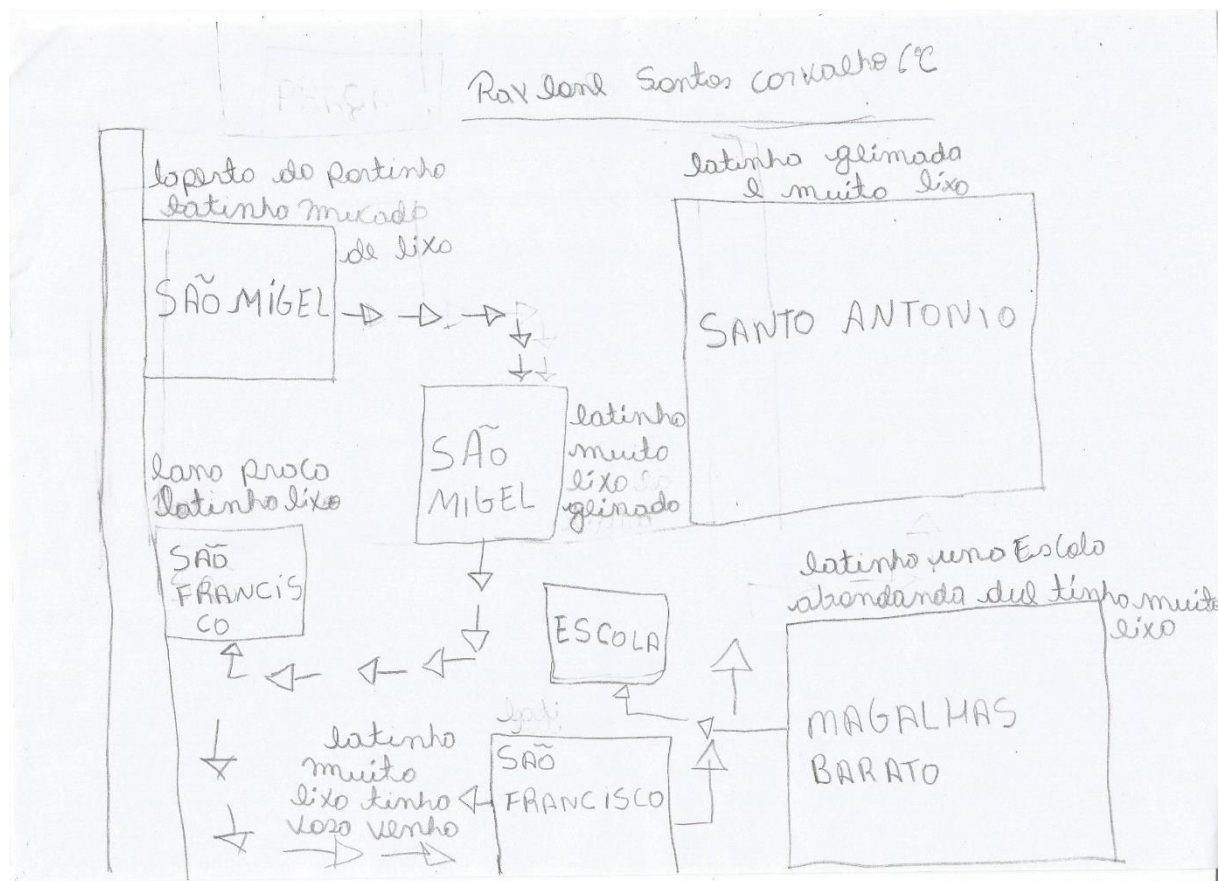 Santos Corvalho 6ºC
laperto do Portinho
latinho mucado
de lixo
SÃO MIGEL
latinho geimada
e muito lixo
SANTO ANTONIO
SÃO
MIGEL
latinho
muito
lixo
geimado
lano proco
latinho lixo
SÃO
FRANCIS
CO
ESCOLA
latinho uma Escolo
abondanda tinho muito
lixo
MAGALHAS
BARATO
latinho
muito
lixo tinho
venho
SÃO
FRANCISCO